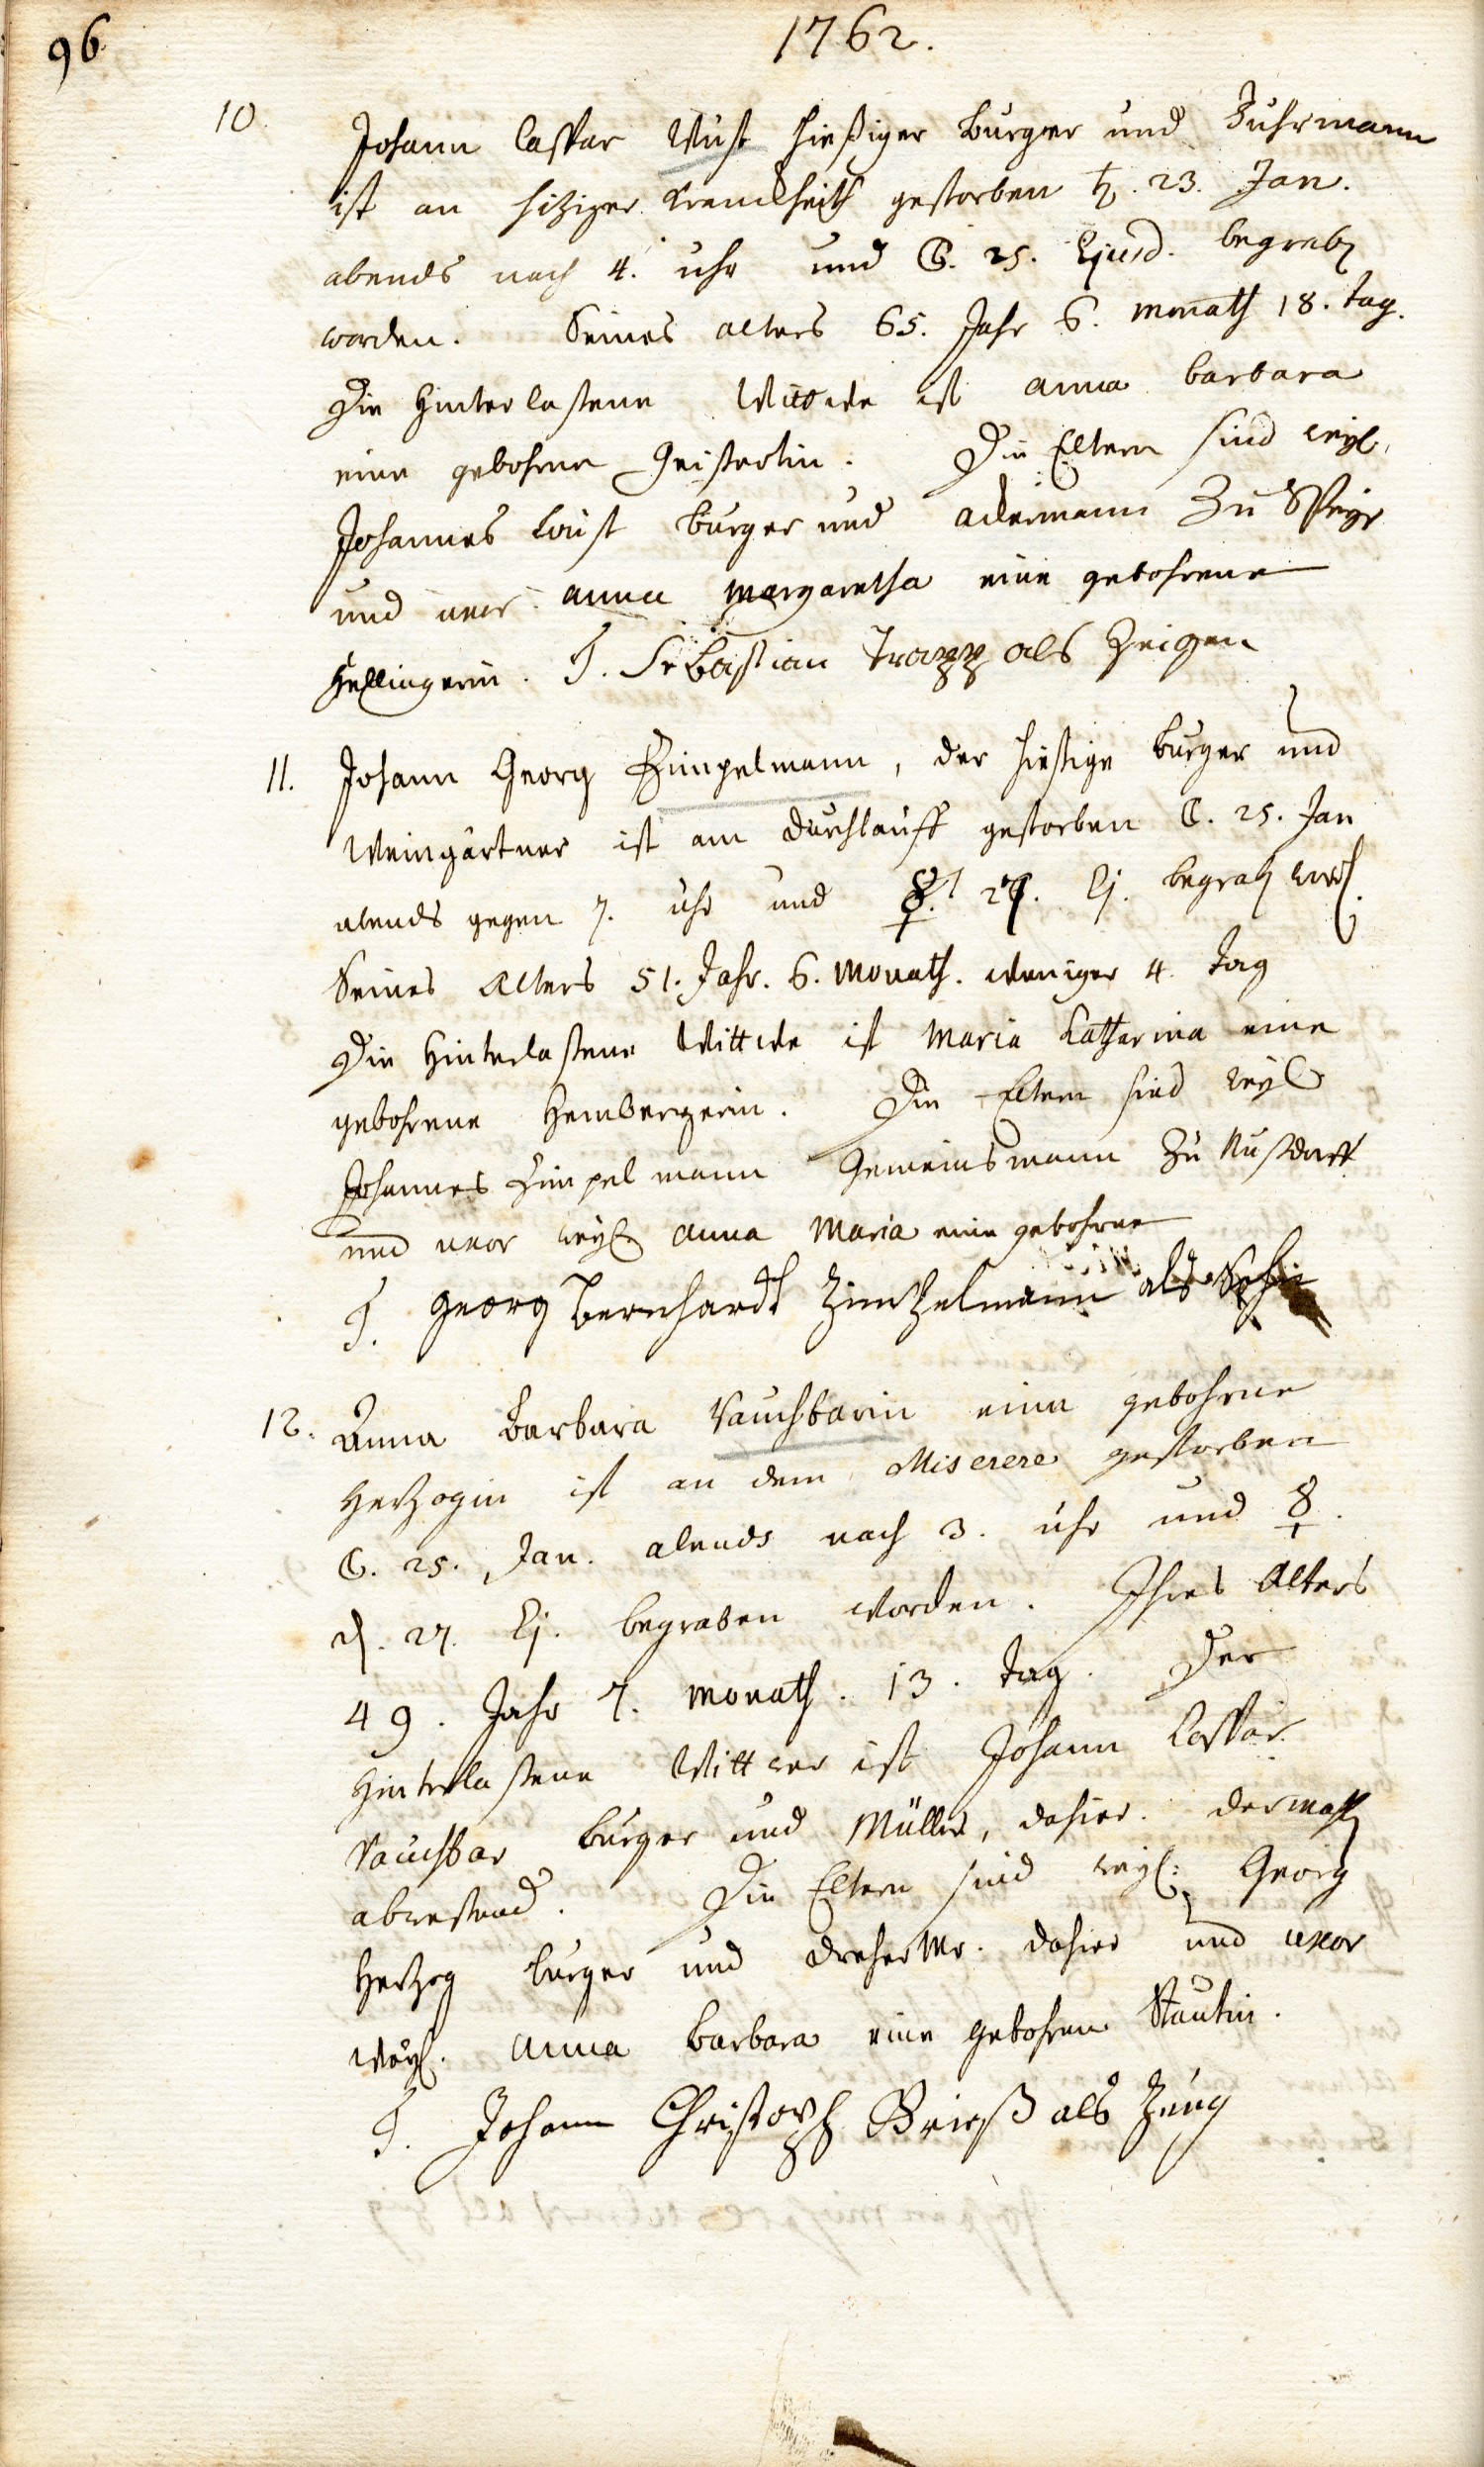 96
1762.
10. Johann Caspar Wüst hießiger Burger und Fuhrmann
ist an hitziger Kranckheith gestorben ♄. 23. Jan.
abends nach 4. uhr und ☾. 25. Ejusd. begrab[en]
worden. Seines alters 65. Jahr 6. monath 18. tag.
Die Hinterlaßene Wittwe ist anna barbara
eine gebohrne Geisertin. Die Eltern sind weyl.
Johannes Wüst burger und ackermann Zu Speyer
und uxor anna margaretha eine gebohrene
Hellingerin. T. Sebastian Trapp als Zeigen
11. Johann Georg Zimpelmann, der hießige burger und
Weingärtner ist am durchlauff gestorben ☾. 25. Jan
abends gegen 7. uhr und ☿. 27. Ej. begrab word.
Seines Alters 51. Jahr. 6. Monath. weniger 4. tag
Die Hinterlaßene Wittwe ist Maria Catharina eine
gebohrene Hembergerin. Die Eltern sind weyl
Johannes Zimpelmann Gemeinsmann Zu Nußdorff
und uxor weyl anna Maria eine gebohrne
T. Georg Bernhardt Zimpelmann als Sohn
12. Anna Barbara Rauchbarin eine gebohrne
Hertzogin ist an dem Miserere gestorben
☾. 25. Jan. abends nach 3. uhr und ☿.
d. 27. Ej. begraben worden. Ihres Alters
49. Jahr 7. monath. 13. tag. Der
Hinterlaßene Wittwer ist Johann Caspar
Rauchbar burger und Müller, dahier. dermahl
abweßend. Die Eltern sind weyl: Georg
Hertzog burger und dreher Mr. dahier und uxor
weyl. anna barbara eine gebohren Stautin.
T. Johann Christoph Brieß als Zeug